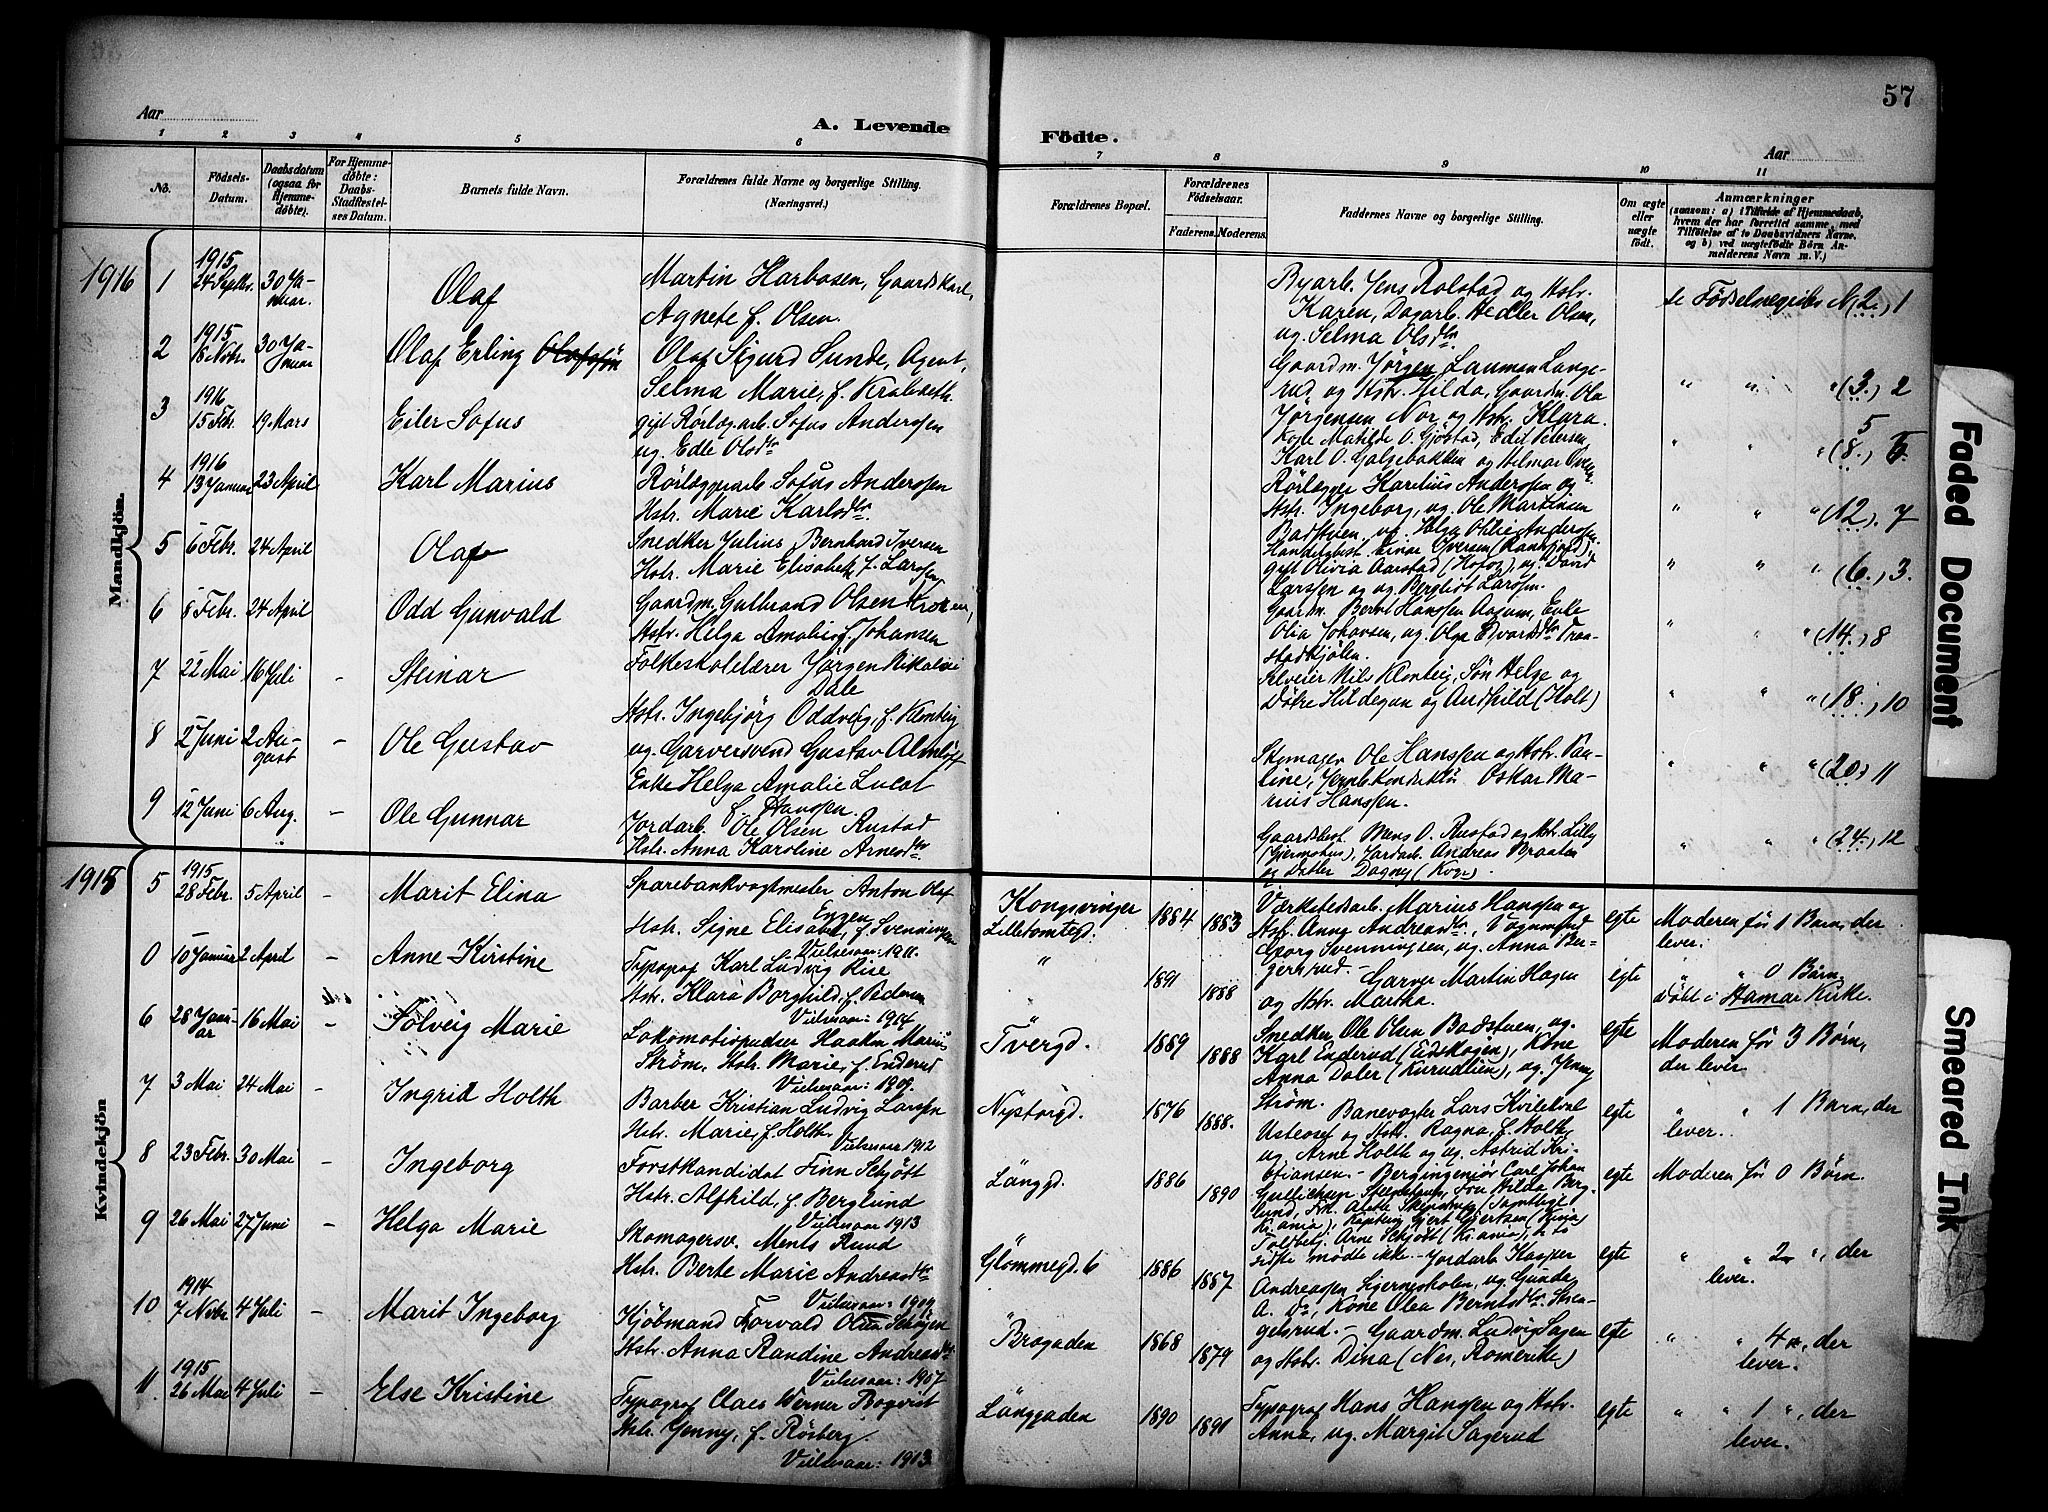 57
Aar
A. Levende
Födte.
Aar
1 2 3 4 5 6 7 8 9 10 11
No.
Födsels-
Datum.
Daabsdatum
(ogsaa for
Hjemme-
døbte).
For Hjemme-
døbte:
Daabs-
Stadfæstel-
ses Datum.
Barnets fulde Navn.
Forældrenes fulde Navne og borgerlige Stilling.
(Næringsvei.)
Forældrenes Bopæl.
Forældrenes
Födselsaar.
Faderens. Moderens.
Faddernes Navne og borgerlige Stilling.
Om ægte
eller
uægte
født.
Anmærkninger
(saasom: a) i Tilfælde af Hjemmedaab,
hvem der har forrettet samme, med
Tilföielse af to Daabsvidners Navne.
og b) ved uægtefödte Börn An-
melderens Navn m. V.)
Mandkjön.
1916
1
1915
24 Septbr.
30 Ja-
nuar.
Olaf
Martin Harbosen, Gaardskarl,
Agnete f. Olsen.
Byarb. Jens Rolstad og Hstr.
Karen, Dagarb. Hedler Olsen,
ug. Selma Olsdtr
se Födselsregister N (2.) 1
2
1915
18 Novbr.
30 Ja-
nuar
Olaf Erling Olafsön
Olaf Sigurd Sunde, Agent,
Selma Marie, f.
Gaardm. Jörgen Lauman Lange-
rud og Hstr. Hilda, Gaardm. Ola
Jörgensen Nor og Hstr. Klara.
" " " (3.) 2
3
1916
15 Febr.
19 Mars
Eiler Sofus
gift Rörlæg. arb. Sofus Andersen
ug. Edle Olsdtr
Kone Matilde O. Gjöstad, Edit Petersen,
Karl O. Galsebakken og Hilmar
" " " (8.) 5
4
1916
13 Januar
23 April
Karl Marius
Rörlæggerarb. Sofus Andersen
Hstr. Marie Karlsdtr.
Rörlægger Karelius Andersen og
Hstr. Ingeborg, ug. Ole Martinsen
Badstuen, ug. Helga Otilie Andersen.
" " " (12). 7
5
6 Febr.
24 April
Olaf
Snedker Julius Bernhard Iversen
Hstr. Marie Elisabeth f. Larssen
Handelsbest. Einar Iversen
gift Olivia Aarstad (Hofoz), ug. David
Larssen og ug Bergliot Larssen.
" " " (6.) 3.
6
8 Febr.
24 April
Odd Gunvald
Gaardm. Gulbrand Olsen Kroken,
Hstr. Helga Amalie f. Johansen
Gaardm. Bernt Hanssen Aasum, Enke
Olia Johansen, ug. Olga Edvardsdtr Traa-
stadkjölen.
" " " (14.) 8
7
22 Mai
16 Juli
-
Steinar
Folkeskolelærer Jörgen Nikolai
Dale
Hstr. Ingebjörg Oddveig, f. Klonteig
Elveier Nils Klonteig, Sön Helge og
Dötre Hildegun og Audhild (Holt)
" " " (18.), 10
8
2 Juni
2 Au-
gust
-
Ole Gustav
ug. Garversvend Gustav Almlöf
Enke Helga Amalie
f. Hanssen
Skomager Ole Hanssen og Hstr. Pau-
line, Jernbkonduktör Oskar Ma-
rius Hanssen.
" " " (20.) 11
9
12 Juni
6 Aug.
-
Ole Gunnar
Jordarb. Ole Olsen Rustad
Hstr. Anna Karoline Arnesdtr
Gaardsbest. Mons O. Rustad og Hstr. Lilly
(Gjermshus), Jordarb. Andreas Braaten
og Datter Dagny (Kon.)
" " " (24.) 12
Kvindekjön
1915
5
1915
28 Febr.
5 April
-
Marit Elina
Sparebankvagtmester Anton Olaf
Engen
Hstr. Signe Elisabet, f. Svenningsen
Vielsesaar: 1911.
Kongsvinger
Lilletomtegd.
1884
1883
Værkstedsarb. Marius Hanssen og
Hstr. Anne Andreasdtr, Vognmand
Georg Svenningsen, ug. Anna Bu-
gerkrud.
egte
Moderen för 1 Barn, der
lever.
0
10 Januar
2 April
-
Anne Kirstine
Typograf Karl Ludvig Rise
Hstr. Klara Borghild, f. Pedersen
Vielsesaar: 1914
"
"
1891
1888
- Garver Martin Hagen
og Hstr. Martha.
egte
" " 0 Börn.
Döbt i Hamar Kirke.
6
28 Janu-
ar
16 Mai
-
Sölveig Marie
Lokomotivpudser Haakon Marius
Ström, Hstr. Marie, f. Enderud
Vielsesaar: 1909.
Tvergd.
1889
1888
Snedker Ole Olsen Badstuen, ug.
Karl Enderud (Eidskogen), Kone
Anna Daler (Kurudlien), ug. Jenny
Ström.
egte
Moderen för 3 Börn,
der lever.
7
3 Mai
24 Mai
-
Ingrid Holth
Barber Kristian Ludvig Larssen
Hstr. Marie, f. Holth
Vielsesaar 1912
Nytorgd.
1876
1888.
Banevogter Lars Kvilekval
Usteoset og Hstr. Ragna, f. Holth
ug. Arne Holth og ug. Astrid Kri-
stiansen.
egte
" " 1 Barn, der
lever.
8
23 Febr.
30 Mai
-
Ingeborg
Forstkandidat Finn Schjött
Hstr. Alfhild, f. Berglund
Vielsesaar 1913
Länggd.
1886
1890
- Bergingeniör Carl Johan
Fru Hilda Berg-
lund, Frk.
Toldbetj. Arne Schjött (Kr.ania), to
sidste mödte ikke.
egte
Moderen för 0 Börn.
9
26 Mai
27 Juni
-
Helga Marie
Skomagersv. Ments Ruud
Hstr. Berte Marie Andreasdtr
Vielsesaar: 1909
Glömmegd. 6
1886
1887
- Jordarb. Kasper
Andreassen Sigerneskolen, ug. Gunda
A. Dr, Kone Olea Berntsdtr Stran-
gelsrud.
egte
" " 2 ", der
lever.
10
1914
7 Novbr.
4 Juli
-
Marit Ingeborg
Kjöbmand Torvald Olsen Schöyen
Hstr. Anna Randine Andreasdtr
Vielsesaar: 1907
Brogaden
1868
1879
- Gaardm. Ludvig Sagen
og Hstr. Dina (Nes, Romerike)
egte
" " 4 ", der
lever.
11.
1915
26 Mai
4 Juli
-
Else Kristine
Typograf Claes Werner Boqvist
Hstr. Jenny, f. Rösberg.
Vielsesaar: 1913.
Länggaden
1890
1891
Typograf Hans Hanssen og Hstr.
Anna, ug. Margit Sagerud
egte
" " 1 ", der
lever.
Faded Document
Smeared Ink